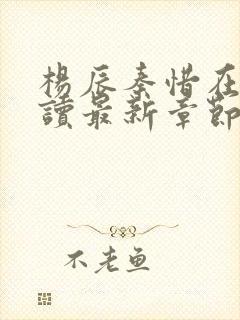 楊辰秦惜在
讀最新章節
不老魚